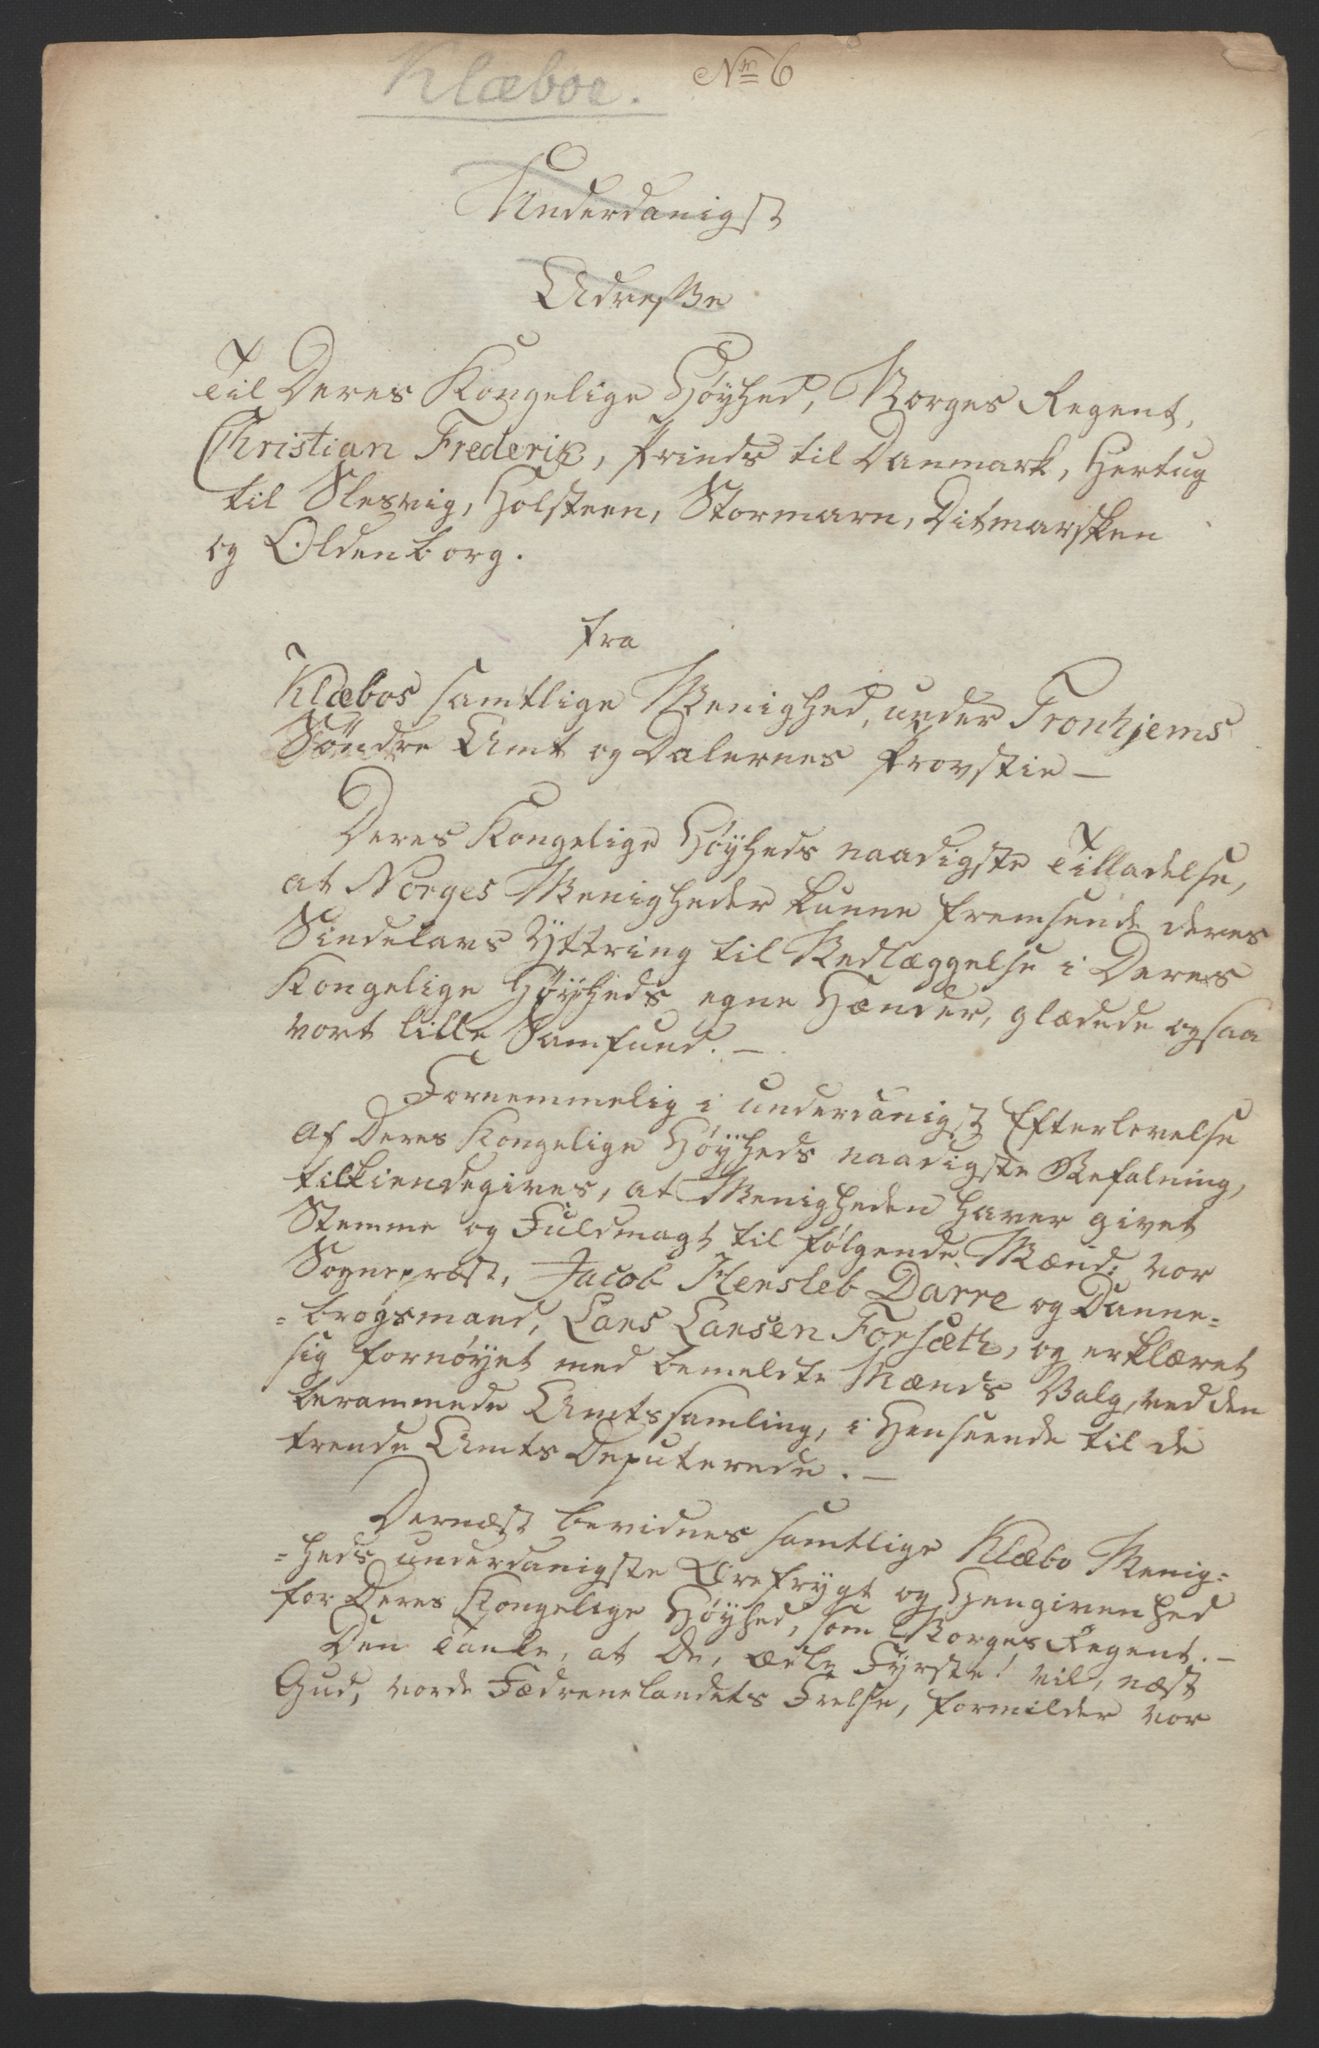 Klæboe.
No 6
Underdanigst
Adresse
Til Deres Kongelige Høyhed, Norges Regent,
Christian Frederik, Prinds til Danmark, Hertug
til Slesvig, Holsteen, Stormarn, Ditmarsken
og Oldenborg.
fra
Klæbos samtlige Menighed, under Tronhjems
Søndre Amt og Dalernes Provstie —
Deres Kongelige Høyheds naadigste Tilladelse,
at Norges Menigheder kunne fremsende deres
Sindelavs Yttring til Nedlæggelse i Deres
Kongelige Høyheds egne Hænder, glædede ogsaa
vort lille Samfund. —
Fornemmelig i underdanigst Efterlevelse
af Deres Kongelige Høyheds naadigste Befalning,
tilkiendegives, at Menigheden haver givet
Stemme og Fuldmagt til følgende Mænd: vor
Sogneprest, Jacob Hersleb Darre og Danne-
-brogsmand, Lars Larsen Forsæth, og erklæret
sig fornøyet med bemeldte Mænds Valg, ved den
berammede Amtssamling, i Henseende til de
trende Amts Deputerede. —
Dernæst bevidnes samtlige Klæbo Menig-
-heds underdanigste Ærefrygt og Hengivenhed
for Deres Kongelige Høyhed, som Norges Regent. —
Den Tanke, at De, ædle Fyrste! vil, næst
Gud, vorde Fædrenelandets Frelse, formilder vor